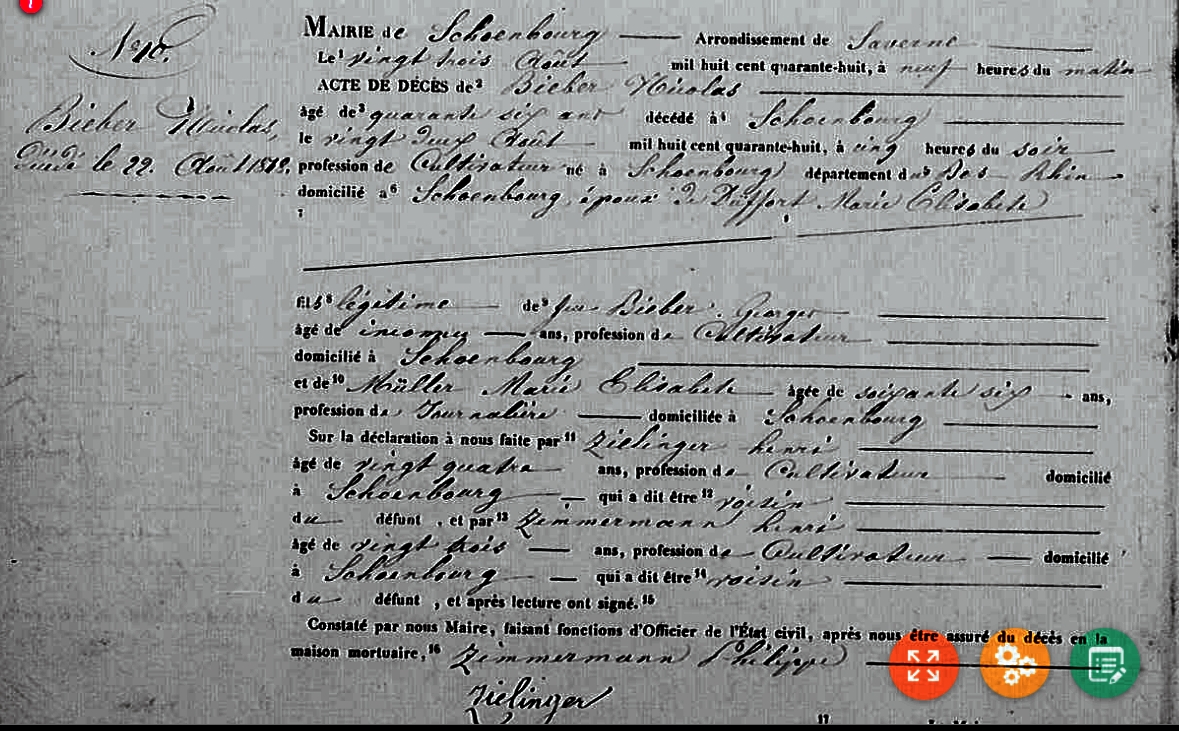 N° 10.
Bieber Nicolas,
décédé le 22. Août 1848.
MAIRIE de Schoenbourg Arrondissement de Saverne
Le¹ vingt trois Août mil huit cent quarante-huit, à neuf heures du matin
ACTE DE DÉCÈS de² Bieber Nicolas
âgé de³ quarante six ans décédé à⁴ Schoenbourg
le vingt deux Août mil huit cent quarante-huit, à cinq heures du soir
profession de Cultivateur né à Schoenbourg département du⁵ Bas Rhin
domicilié à⁶ Schoenbourg, époux de Ruffort Marie Elisabete
7
fils⁸ légitime de⁹ feu Bieber Georges
âgé de inconnu ans, profession de Cultivateur
domicilié à Schoenbourg
et de¹⁰ Müller Marie Elisabete âgée de soixante six ans,
profession de Journalière domiciliée à Schoenbourg
Sur la déclaration à nous faite par¹¹ Zielinger henri
âgé de vingt quatre ans, profession de Cultivateur domicilié
à Schoenbourg qui a dit être¹² voisin
du défunt , et par¹³ Zimmermann henri
âgé de vingt trois ans, profession de Cultivateur domicilié
à Schoenbourg qui a dit être¹⁴ voisin
du défunt , et après lecture ont signé.¹⁵
Constaté par nous Maire, faisant fonctions d'Officier de l'État civil, après nous être assuré du décès en la
maison mortuaire,¹⁶ Zimmermann Philippe
Zielinger
17